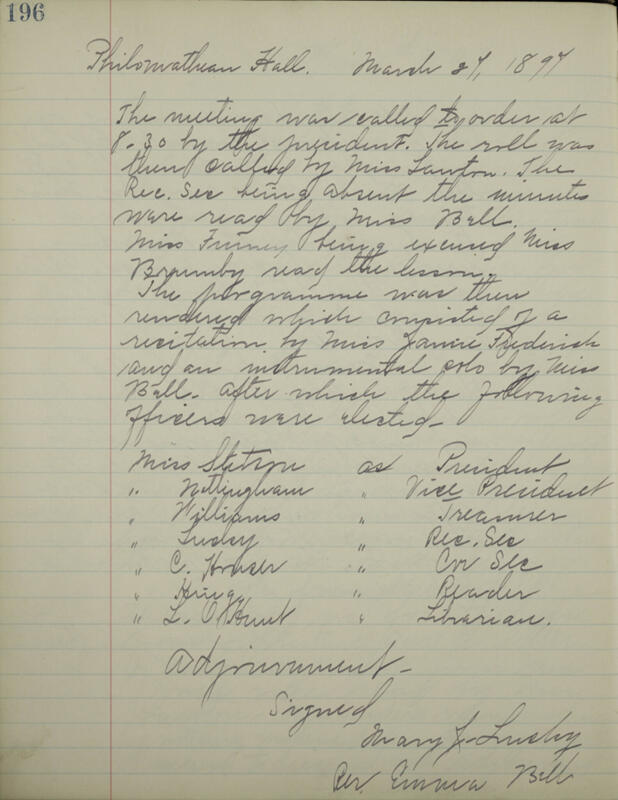 196
Philomathean Hall. March 27, 1897
The meeting was called to order at
8-30 by the president. The roll was
then called by Miss Lawton. The
Rec. Sec being absent the minutes
were read by Miss Bell.
Miss Finney being excused Miss
Brumby read the lesson.
The porgramme was then
rendered which consisted of a
recitation by Miss Janie Frederick
and an instrumental solo by Miss
Bell. after which the following
officers were elected-
Miss Stetson as President
" Nottingham " Vice President
" Williams " Treasurer
" Lusby " Rec. Sec
" C. " Cor Sec
" King " Reader
" L. O'Hunt " Librarian.
Adjournment-
Signed
Mary J. Lusby
Per. Emma Bell